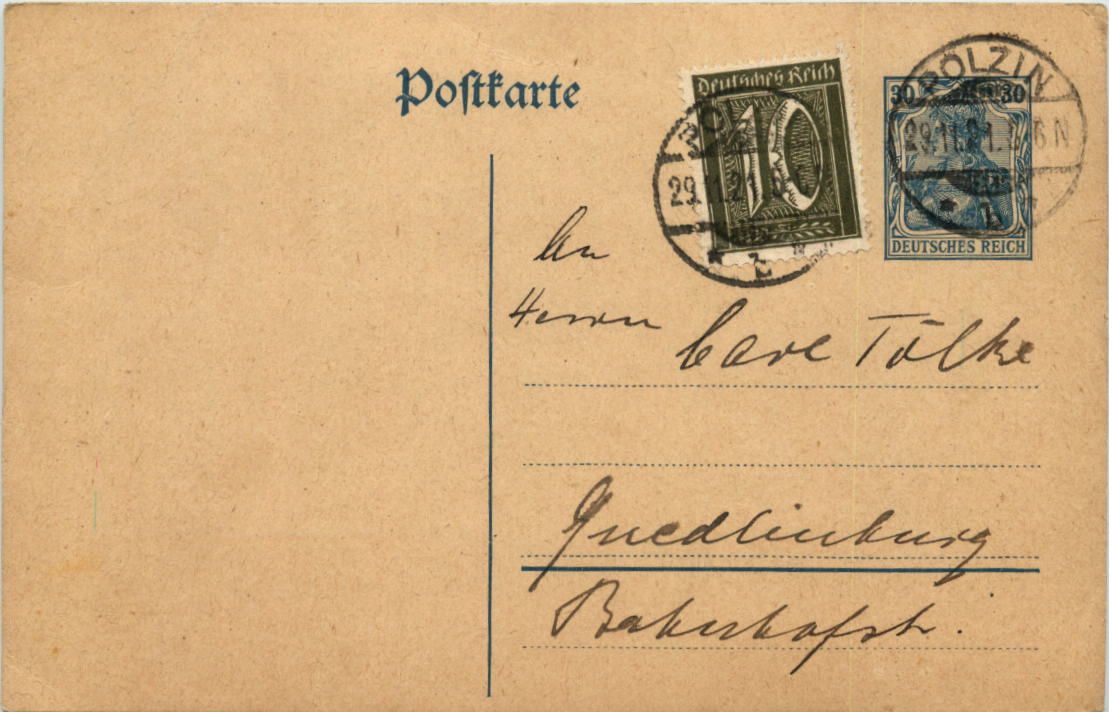 Postkarte
Deutsches Reich
10
30 30
DEUTSCHES REICH
POLZIN
29.11.21.
29.11.21. 6N
An
Herrn Carl Tölke
Quedlinburg
Bahnhofstr.